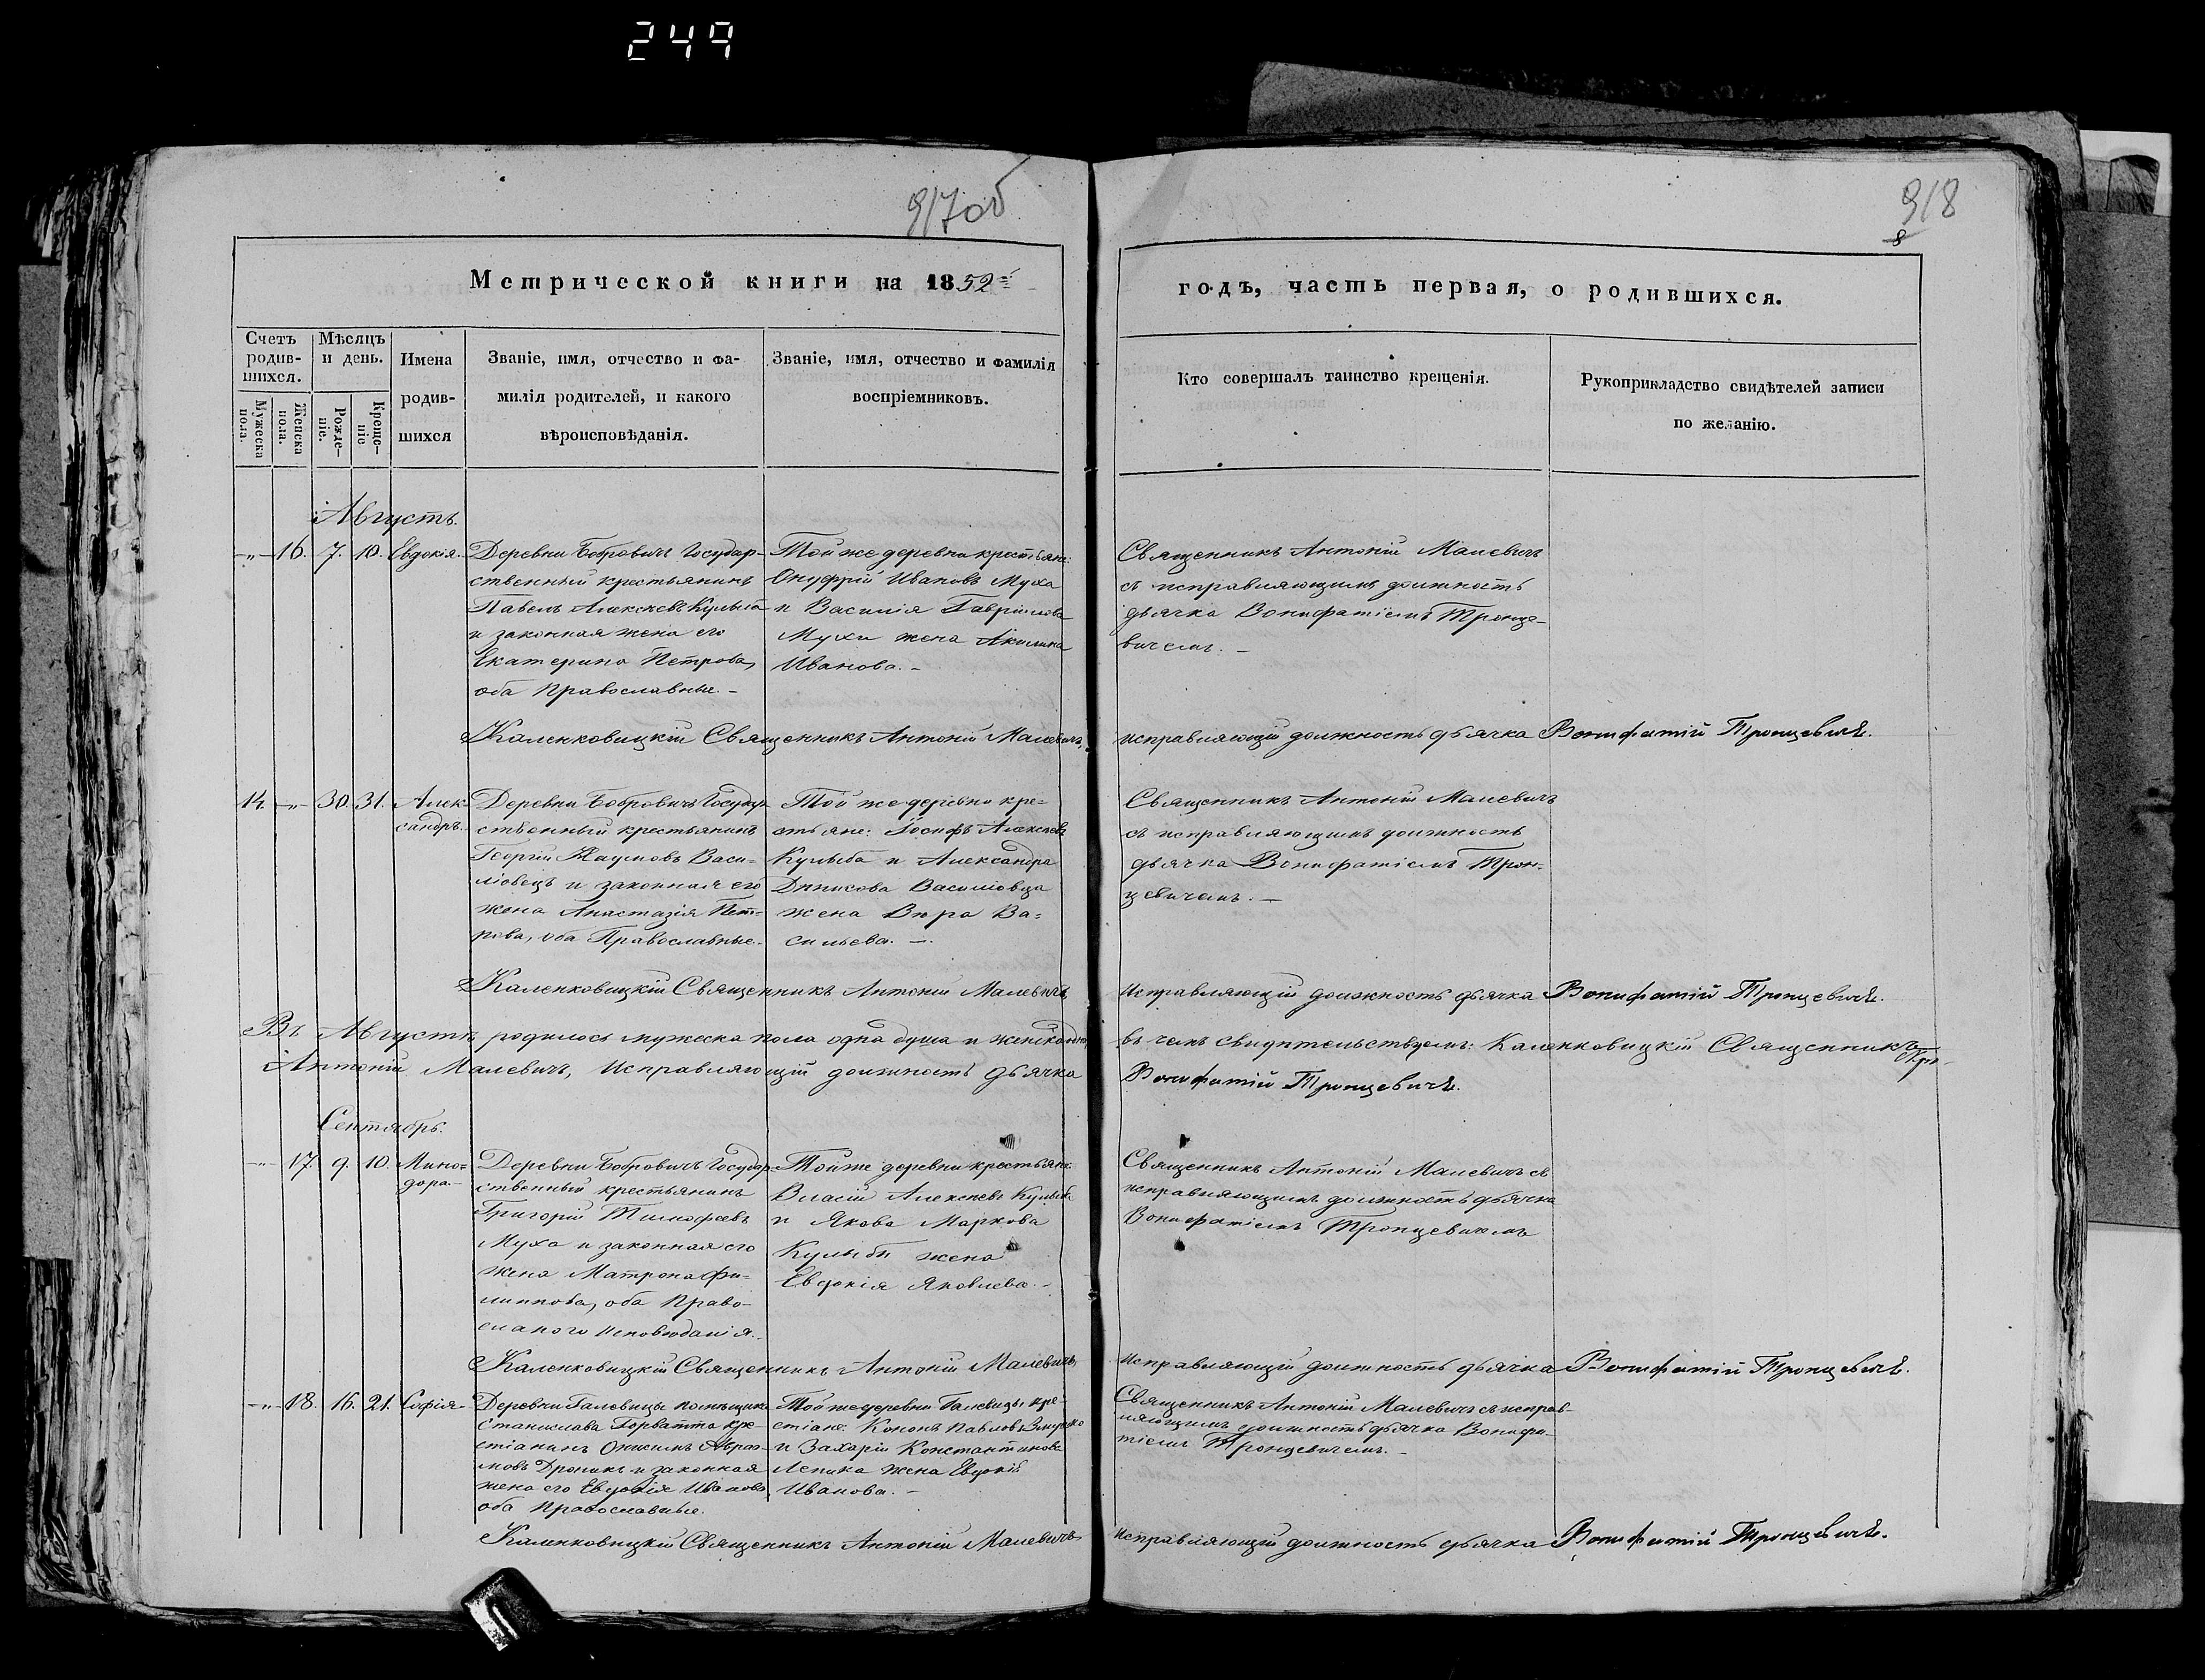 249
917об
918
8
Метрической книги на 1852й
годъ, часть первая, о родившихся.
Счетъ родив-
шихся.
Мѣсяцъ
и день.
Имена
родив-
шихся
Званіе, имя, отчество и фа-
милія родителей, и какого
вѣроисповѣданія.
Званіе, имя, отчество и фамилія
воспріемниковъ.
Кто совершалъ таинство крещенія.
Рукоприкладство свидѣтелей записи
по желанію.
Мужеска
пола.
Женска
пола.
Рожде-
ніе.
Креще-
ніе
Августъ.
-„- 16. 7. 10. Евдокія.
Деревни Бобровичъ Государ-
ственный крестьянинъ
Павелъ Алексѣевъ Кулыба
и законная жена его
Екатерина Петрова,
оба православные.-
Той же деревни крестьяне:
Онуфрій Ивановъ Муха
и Василія Гаврилова
Мухи жена Акилина
Иванова.-
Священникъ Антоній Малевичъ
съ исправляющимъ должность
дьячка Вонифатіемъ Тронце-
вичемъ.-
Каленковицкій Священникъ Антоній Малевичъ,
исправляющій должность дьячка Вонифатій Тронцевичъ.
14. -„- 30. 31. Алек-
сандръ.
Деревни Бобровичъ Государ-
ственный крестьянинъ
Георгій Наумовъ Васи-
ловецъ и законная его
жена Анастазія Пет-
рова, оба Православные.
Той же деревни кре=
стьяне: Іосифъ Алексѣевъ
Кулыба и Александра
Динисова Василовца
жена Вѣра Ва=
сильева.-
Священникъ Антоній Малевичъ
съ исправляющимъ должность
дьячка Вонифатіемъ Трон-
цевичемъ.-
Каленковицкій Священникъ Антоній Малевичъ,
Исправляющій должность дьячка Вонифатій Тронцевичъ.
Въ Августѣ родилось мужеска пола одна душа и женска одна
въ чемъ свидѣтельствуемъ: Каленковицкій Священникъ
Антоній Малевичъ, Исправляющій должность дьячка
Вонифатій Тронцевичъ.
Сентябрь.
-„- 17. 9. 10. Мино=
дора.-
Деревни Бобровичъ Государ-
ственный крестьянинъ
Григорій Тимофеевъ
Муха и законная его
жена Матрона Фи-
липпова, оба Право-
сланого исповѣданія.
Той же деревни крестьяне:
Власій Алексѣевъ Кулыба
и Якова Маркова
Кулыбы жена
Евдокія Яковлева.-
Священникъ Антоній Малевичъ съ
исправляющимъ должность дьячка
Вонифатіемъ Тронцевичемъ
Каленковицкій Священникъ Антоній Малевичъ,
Исправляющій должность дьячка Вонифатій Тронцевичъ.
-„- 18. 16. 21. Софія
Деревни Галевицы помѣщика
Станислава Горватта кре-
стіанинъ Онисимъ Абрам-
мовъ Дроникъ и законная
жена его Евдокія Иванова,
оба православные.
Той же деревни Галевицы кре-
стіане: Кононъ Павловъ
и Захарія Константинова
Лепика жена Евдокія
Иванова.-
Священникъ Антоній Малевичъ съ исправ-
ляющимъ должность дьячка Вонифа-
тіемъ Тронцевичемъ.-
Каленковицкій Священникъ Антоній Малевичъ
Исправляющій должность дьячка Вонифатій Тронцевичъ.